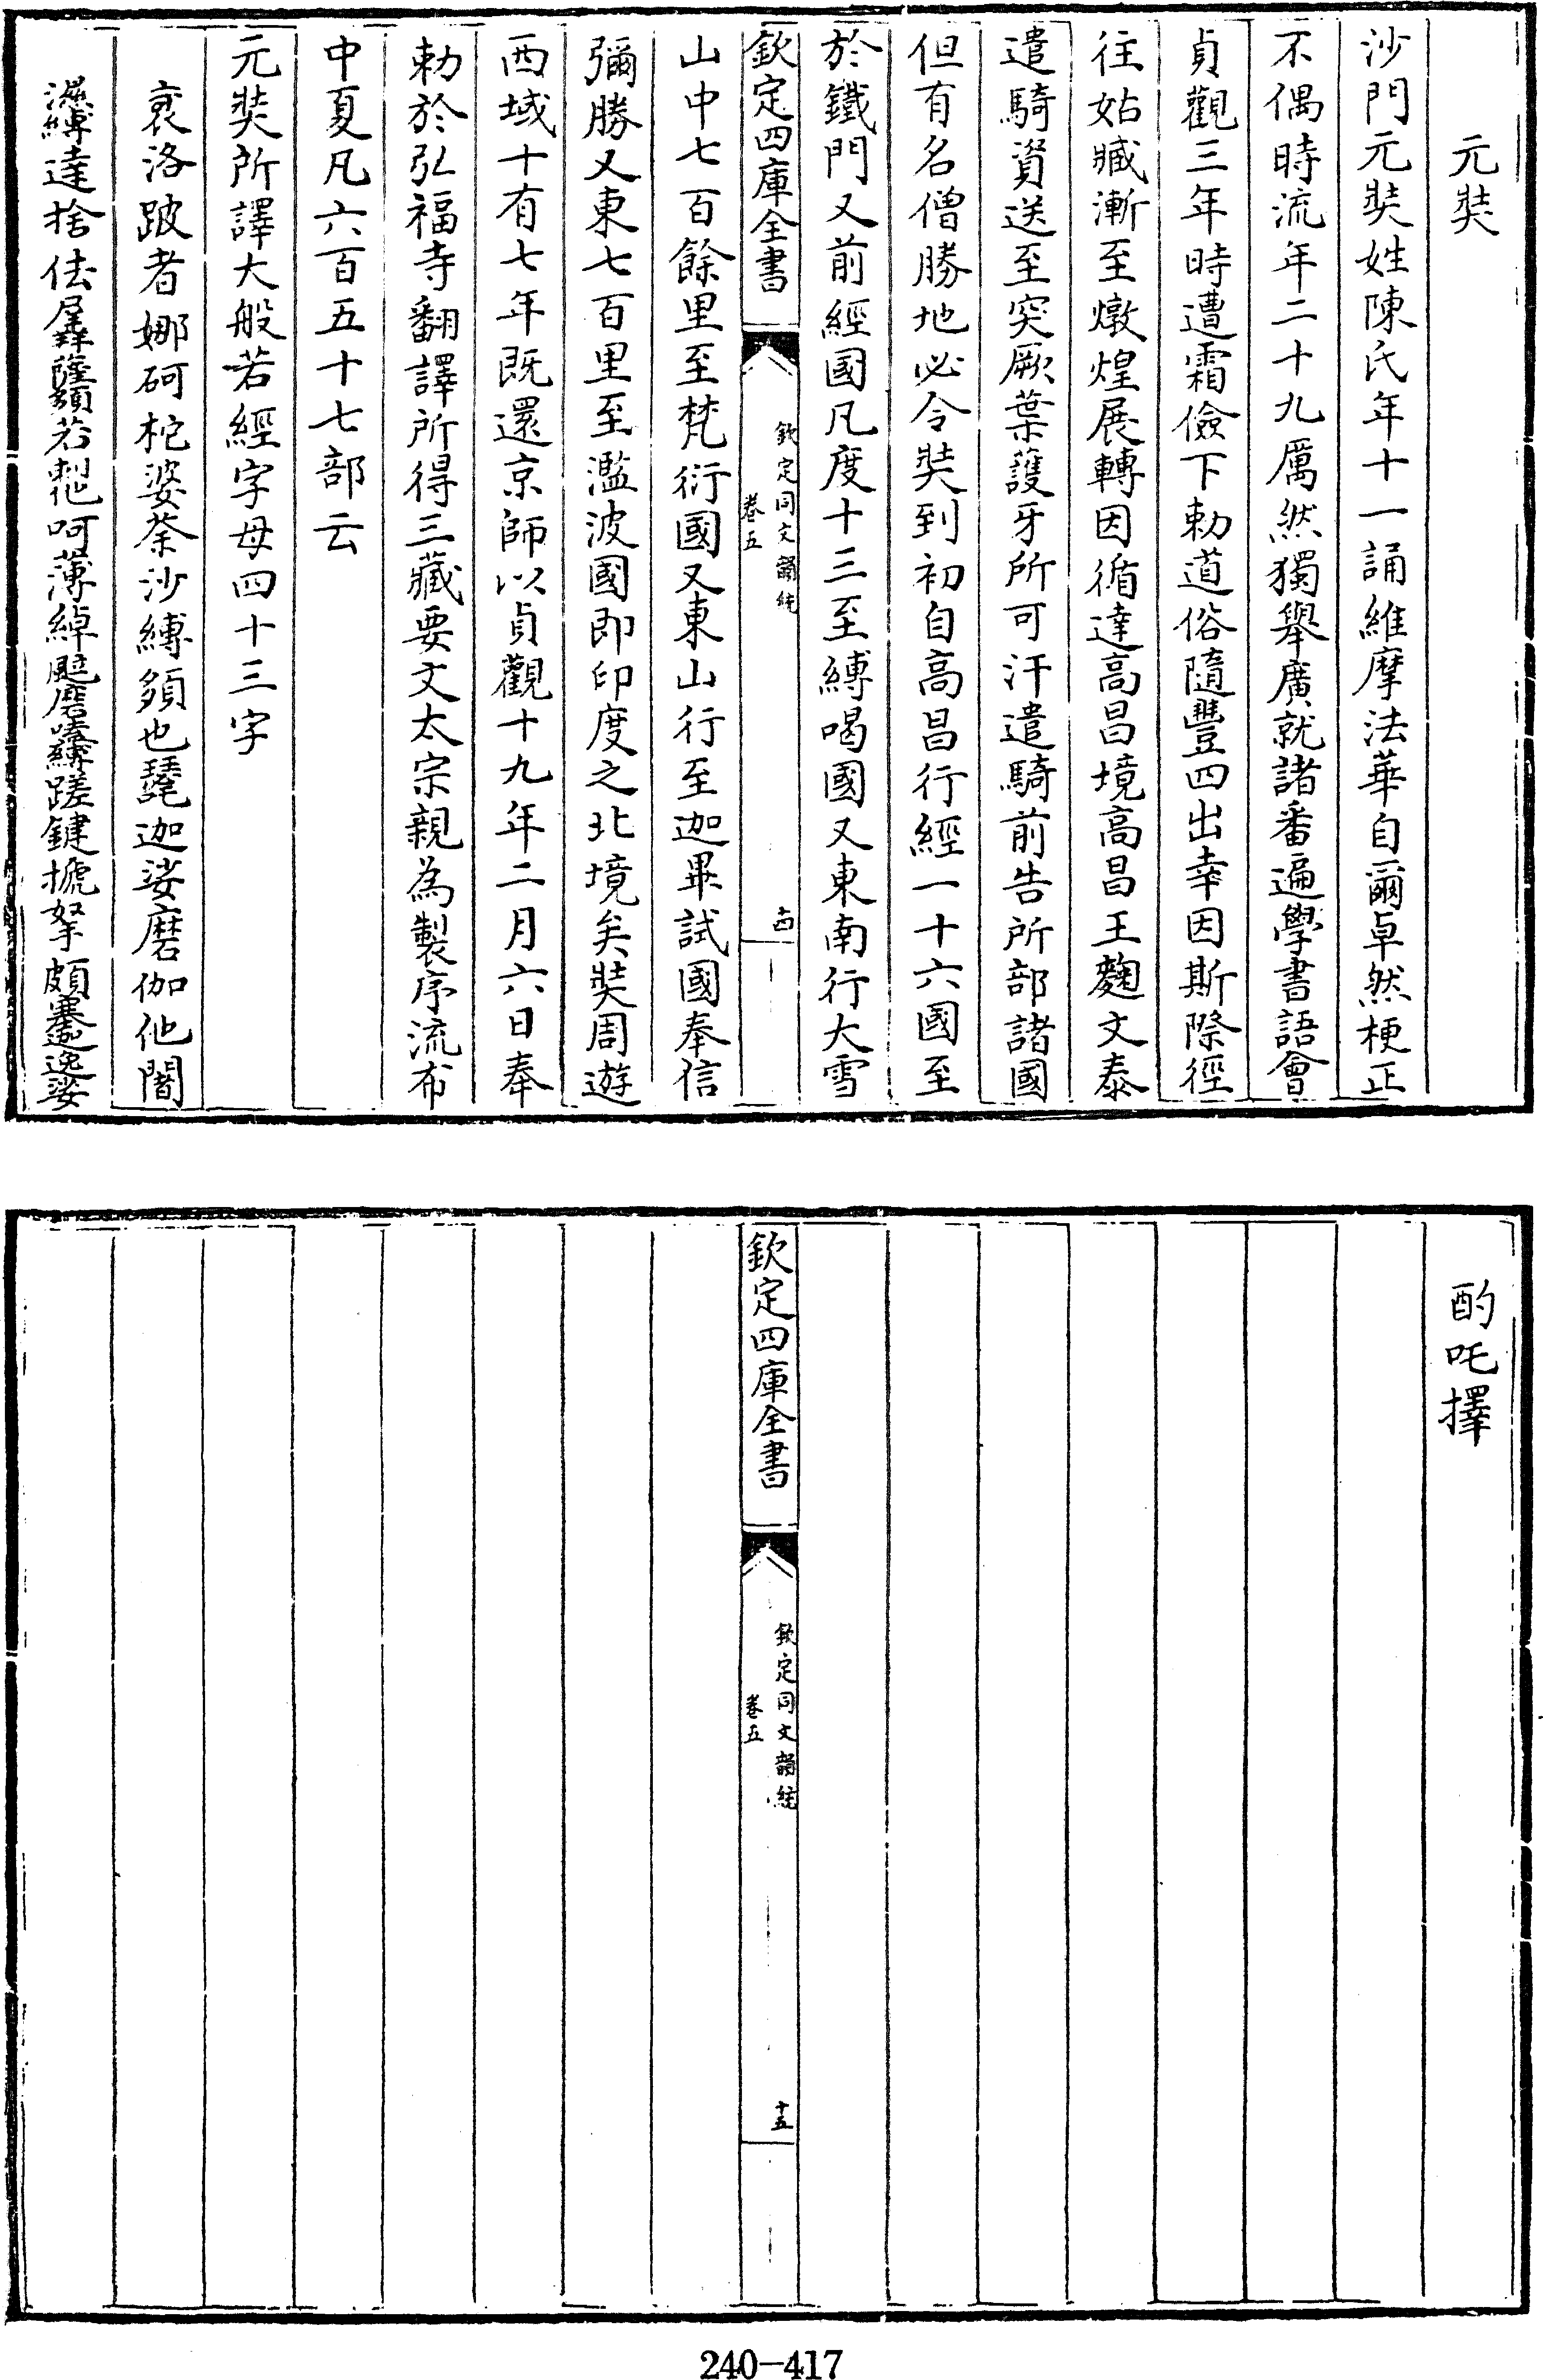 元奘
沙門元奘姓陳氏年十一誦維摩法華自爾卓然梗正
不偶時流年二十九厲然獨舉廣就諸番遍學書語會
貞觀三年時遭霜儉下勅道俗隨豐四出幸因斯際徑
往姑臧漸至燉煌展轉因循達高昌境高昌王麴文泰
遣騎資送至突厥葉護牙所可汗遣騎前告所部諸國
但有名僧勝地必令奘到初自高昌行經一十六國至
於鐵門又前經國凡度十三至縛喝國又東南行大雪
欽定四庫全書
欽定同文韻統
卷五
十四
山中七百餘里至梵衍國又東山行至迦畢試國奉信
彌勝又東七百里至濫波國即印度之北境矣奘周遊
西域十有七年既還京師以貞觀十九年二月六日奉
勅於弘福寺翻譯所得三藏要文太宗親為製序流布
中夏凡六百五十七部云
元奘所譯大般若經字母四十三字
裒洛跛者娜砢柁婆荼沙縛頞也瑟吒迦娑磨伽他闍
濕縛達捨佉羼薩頞若他呵薄綽颯磨縛蹉鍵搋拏頗塞迦逸娑
酌吒擇
欽定四庫全書
欽定同文韻統
卷五
十五
240-417